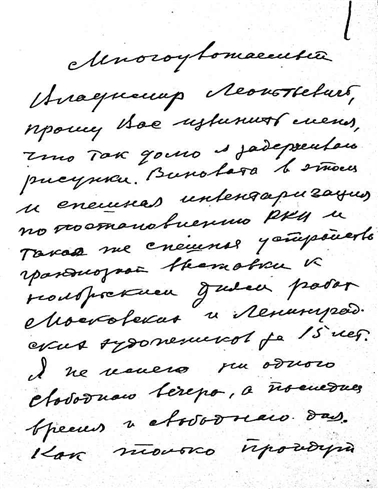 Многоуважаемый
Владимир Леонтьевич,
прошу Вас извинить меня,
что так долго я задерживаю
рисунки. Виновата в этом
и спешная инвентаризация
по постановлению РКИ и
такая же спешная устройство
грандиозной выставки к
ноябрьским дням работ
Московских и Ленинград-
ских художников за 15 лет.
Я не имею ни одного
свободного вечера, а последнее
время и свободного дня.
Как только пройдут